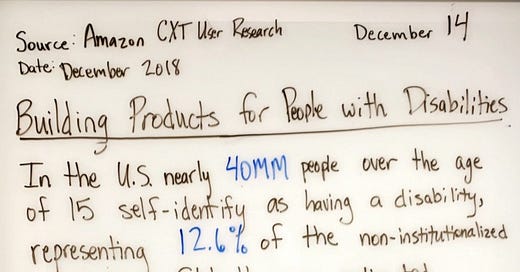 Source: Amazon CXT User Research December 14
Date: December 2018
Building Products for People with Disabilities
In the U.S. nearly 40MM people over the age
of 15 self-identify as having a disability,
representing 12.6% of the non-institutionalized